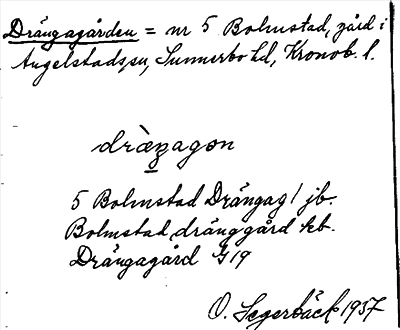 Drängagården = nr 5 Bolmstad, gård i
Angelstads sn, Sunnerbo hd, Kronob. l.
dræ̀ŋagɑn
5 Bolmstad Drängag/ jb.
Bolmstad dränggård kb.
Drängagård G 19
O. Segerbäck 1937